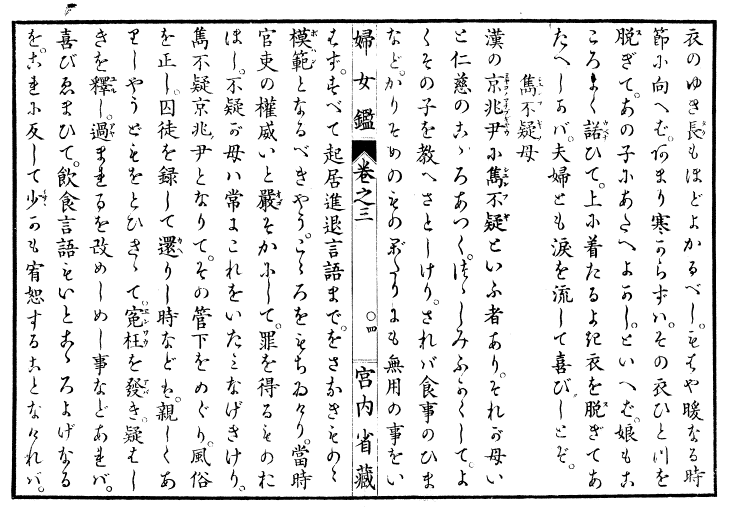 衣のゆき長もほどよかるべし。もはや暖なる時
節に向へば。あまり寒からずハ。その衣ひとつを
脱ぎて。あの子にあたへよかし。といへば。娘もこ
ころよく諾ひて。上に着たるよき衣を脱ぎてあ
たへしかバ。夫婦とも涙を流して喜びしとぞ。
雋不疑母
漢の京兆尹に雋不疑といふ者あり。それが母い
と仁慈のこゝろあつく。つゝしみふかくして。よ
くその子を教へさとしけり。されバ食事のひま
などかりそめのものがたりにも無用の事をい
婦女鑑 巻之三 〇四 宮内省藏
はず。すべて起居進退言語まで。をさなきものゝ
模範となるべきやう。こゝろをもちゐけり。當時
官吏の權威いと嚴そかにして。罪を得るものた
ほし。不疑が母ハ常にこれをいたミなげきけり。
雋不疑京兆尹となりて。その管下をめぐり。風俗
を正し。囚徒を録して還りし時などは。親しくあ
りしやうどもをとひきゝて。寃枉を發き。疑はし
きを釋し。過まれるを改めしめし事などあれバ。
喜びゑまひて。飲食言語もいとこゝろよげなる
を。これに反して少かも宥恕することなけれバ。